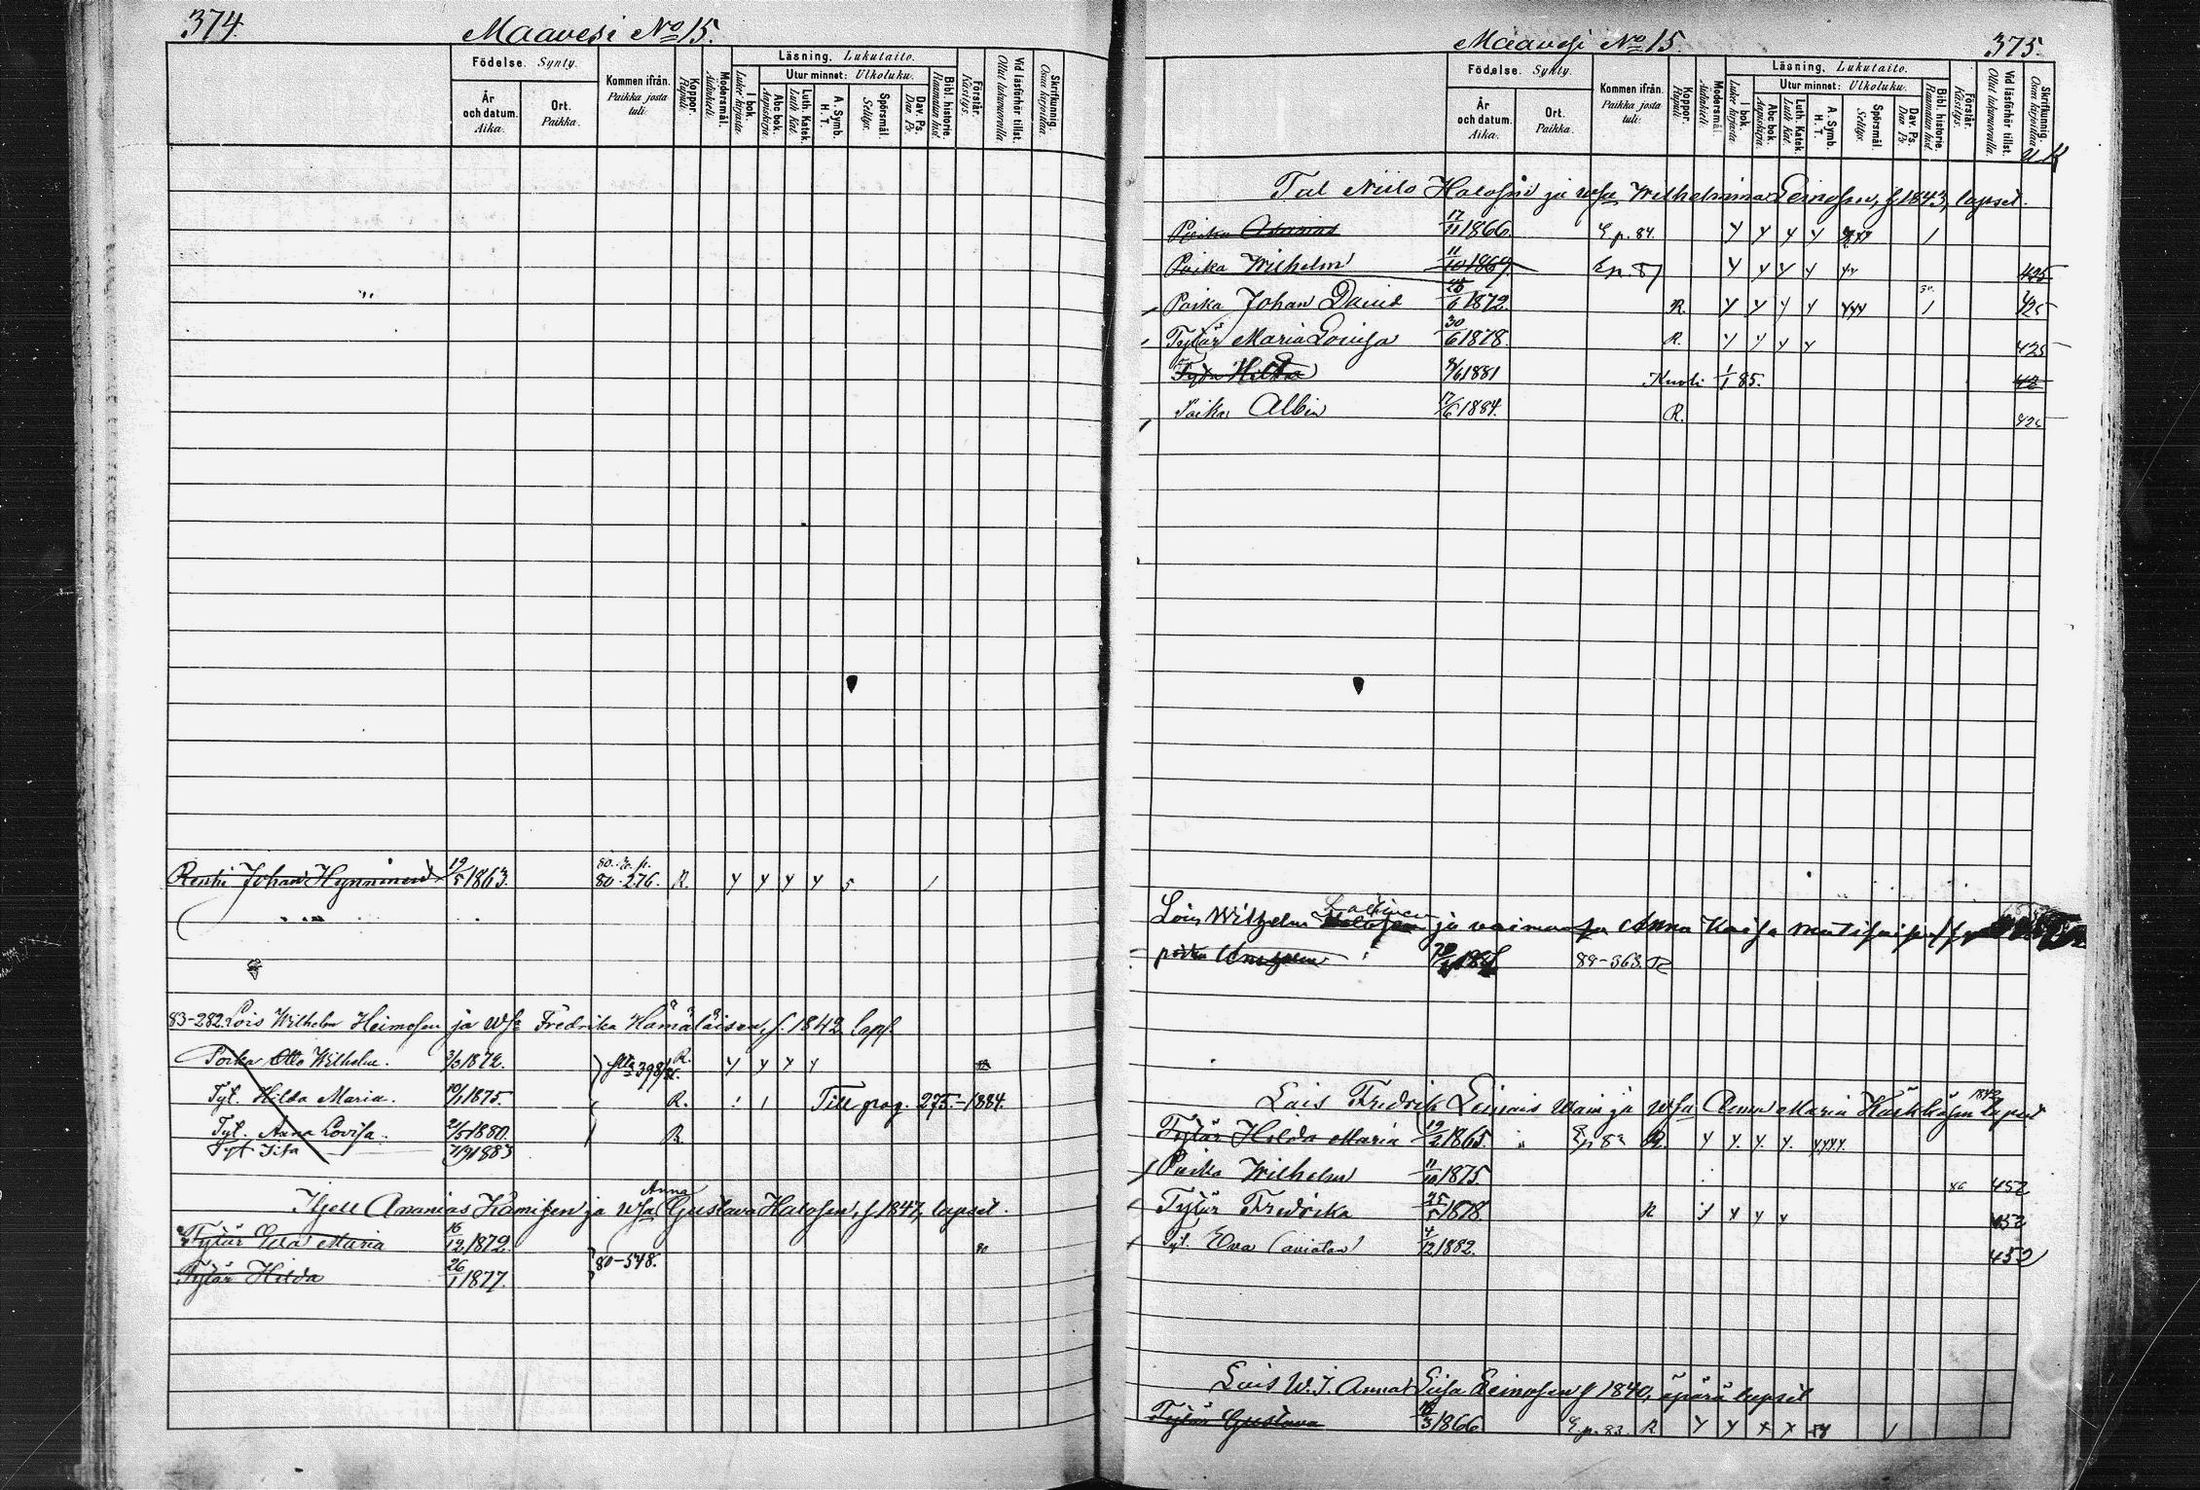 374.
Maavesi No 15.
Födelse. Synty.
Kommen ifrån.
Paikka josta
tuli.
Koppor.
Rupuli.
Modersmål.
Äidinkieli.
Läsning. Lukutaito.
Utur minnet: Ulkoluku.
År
och datum.
Aika.
Ort.
Paikka.
I bok.
Lukee kirjasta.
Abc bok.
Aapiskirja.
Luth. Katek.
Luth Kat.
A. Symb.
H. T.
Spörsmål.
Selitys.
Dav. Ps.
Dav. Ps.
Bibl. historie.
Raamatun hist.
Förstår.
Käsitys.
Vid läsförhör tillst.
Ollut lukuvuorolla.
Skrifkunnig.
Osaa kirjoittaa.
Renki Johan Hynninen 19/5 1863. 80-276. R. y y y y 5 1
83-282. Lois Wilhelm Heinosen ja wsa Fredrika Hämäläisen, f. 1842 laps.
Poika Otto Wilhelm. 2/3 1872. R. y y y y
Tyt. Hilda Maria. 10/1 1875. R. 1 1 Till pag. 275.-1884.
Tyt. Anna Lovisa. 2/5 1880. R.
Tyt Iita 1883
Anna
Itsell Ananias Kämisen ja wsa Gustava Halosen, f 1847, lapset.
Tytär Eva Maria 16/12 1872.
80-548.
Tytär Hilda 26/1 1877.
Maavesi No 15.
375.
Födelse. Synty.
Kommen ifrån.
Paikka josta
tuli.
Koppor.
Rupuli.
Modersmål.
Äidinkieli.
Läsning. Lukutaito.
Utur minnet: Ulkoluku.
År
och datum.
Aika.
Ort.
Paikka.
I bok.
Lukee kirjasta.
Abc bok.
Aapiskirja.
Luth. Katek.
Luth Kat.
A. Symb.
H. T.
Spörsmål.
Selitys.
Dav. Ps.
Dav. Ps.
Bibl. historie.
Raamatun hist.
Förstår.
Käsitys.
Vid läsförhör tillst.
Ollut lukuvuorolla.
Skrifkunnig.
Osaa kirjoittaa.
Tal Niilo Halosen ja wsa Wilhelmina Leinosen, f. 1843, lapset.
Poika Ananias 17/11 1866. p. 84. y y y y 1
Poika Wilhelm 11/10 1869 y y y y yy 425
Poika Johan David 28/6 1872. R. y y y y yyy 1 425
Tytär Maria Lovisa 30/6 1878. R. y y y y 425
Tytär Hilda 1881 Kuoli 1/1 85.
Poika Albin 17/6 1884. R. 425
Lois Wilhelm ja vaimonsa Anna Kaisa
poika 89-363. R
Lois Fredrik Leinois wain ja wsa Anna Maria 1842 lapset
Tytär Hilda Maria 19/2 1865. R. y y. y. y. yyyy.
Poika Wilhelm 11/10 1875. 86 452
Tytär Fredrika 25/5 1878. R y y y y 452
Tyt. Eva (avioton) 4/12 1882. 452
Lois W. I. Anna Liisa Leinosen f 1840, äpärä lapset
Tytär Gustava 18/3 1866 p. 83. R y y x x 1